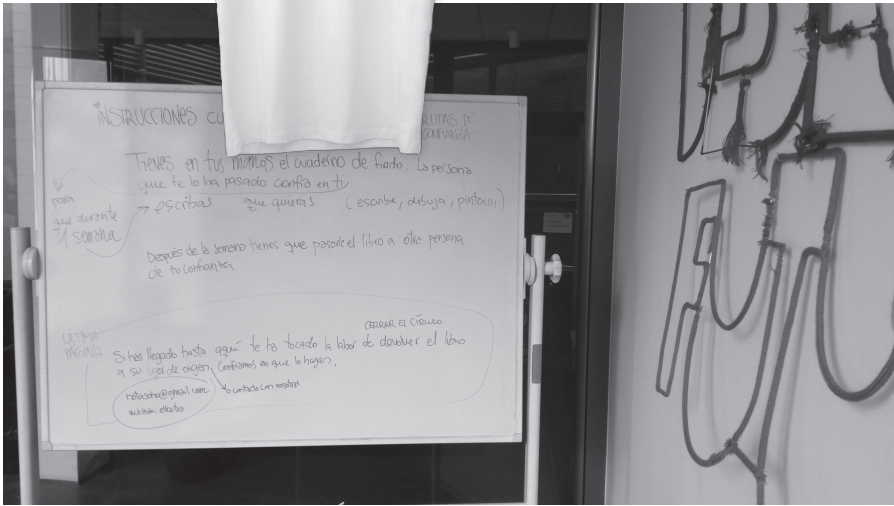 INSTRUCCIONES CU
RUTAS DE
CONFIANZA
Tienes en tus manos el cuaderno de fiado. La persona
que te lo ha pasado confía en ti
para
que durante
1 semana
→ escribas que quieras (escribe, dibuja, pinta...)
Después de la semana tienes que pasarle el libro a otra persona
de tu confianza
ÚLTIMA
PÁGINA
CERRAR EL CÍRCULO
Si has llegado hasta aquí te ha tocado la labor de devolver el libro
a su lugar de origen, Confiamos en que lo hagas.
o contacta con nosotros